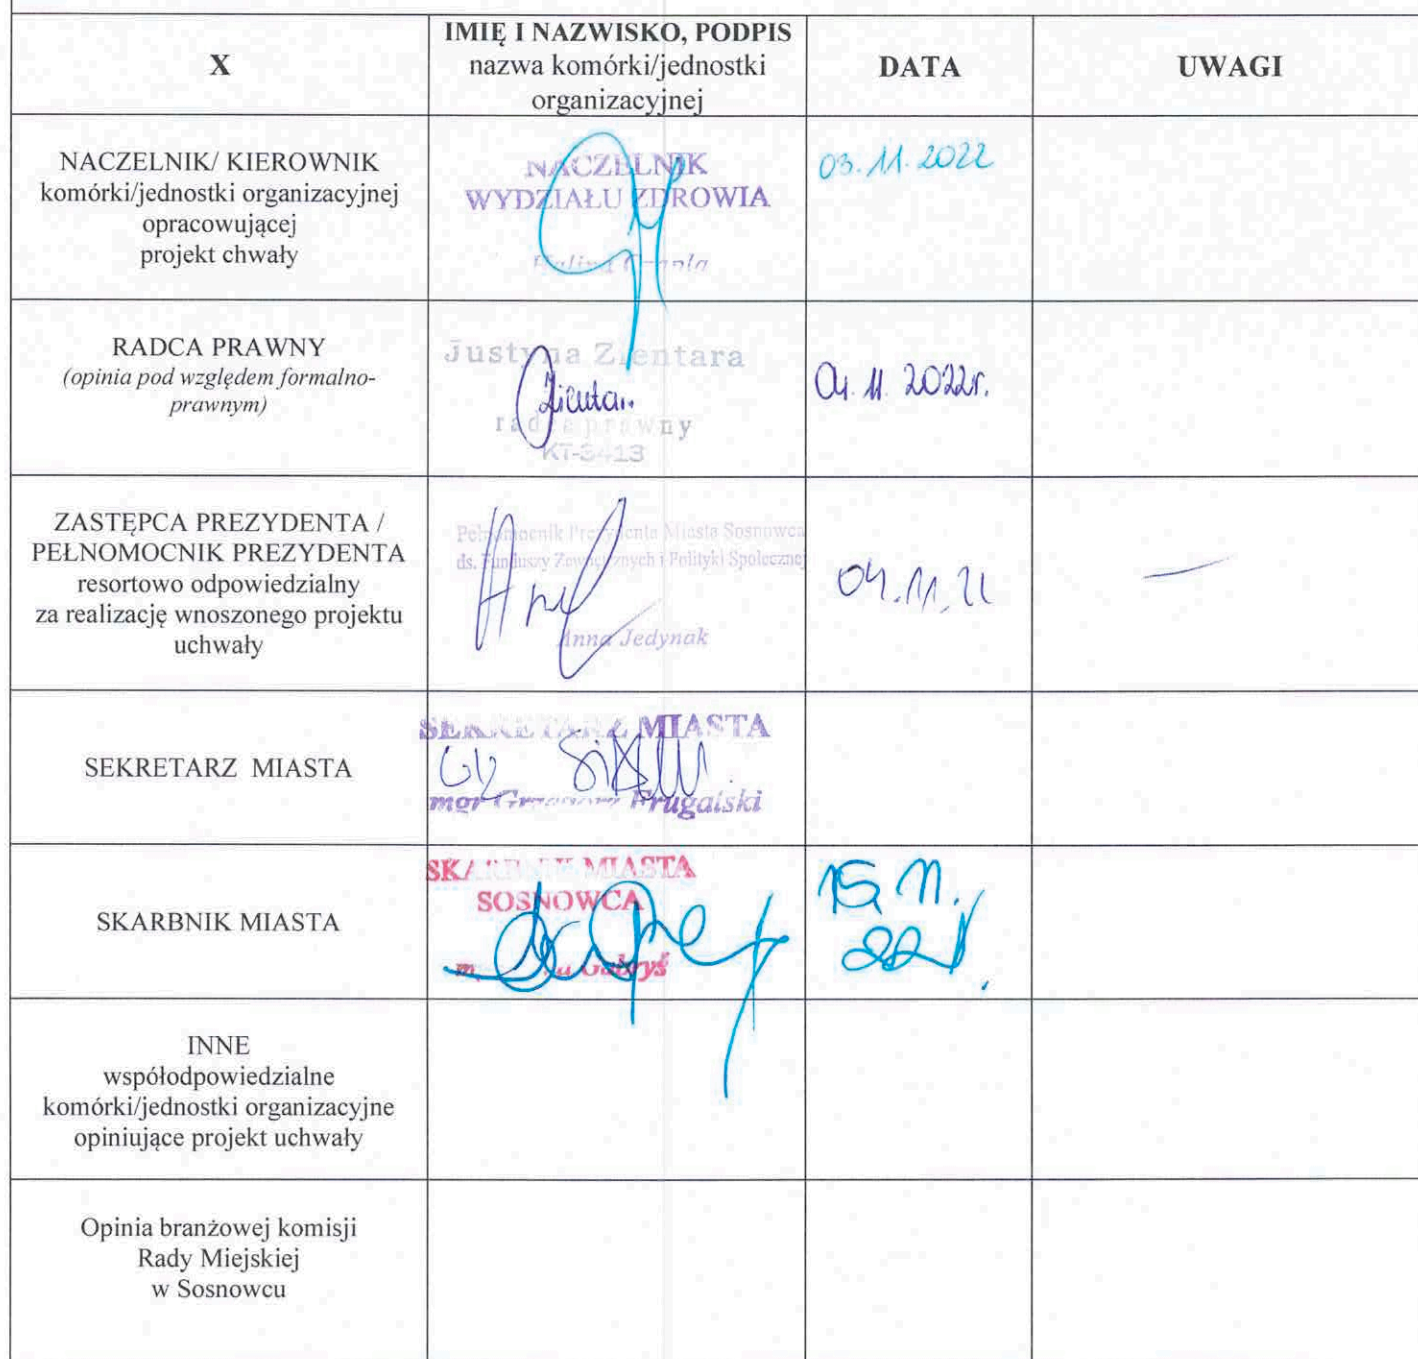 X
IMIĘ I NAZWISKO, PODPIS
nazwa komórki/jednostki
organizacyjnej
DATA
UWAGI
NACZELNIK/ KIEROWNIK
komórki/jednostki organizacyjnej
opracowującej
projekt chwały
NACZELNIK
WYDZIAŁU ZDROWIA
03.11.2022
RADCA PRAWNY
(opinia pod względem formalno-
prawnym)
Justyna Zientara
radca prawny
KT-3413
04.11.2022r.
ZASTĘPCA PREZYDENTA /
PEŁNOMOCNIK PREZYDENTA
resortowo odpowiedzialny
za realizację wnoszonego projektu
uchwały
Pełnomocnik Prezydenta Miasta Sosnowca
ds. Funduszy Zewnętrznych i Polityki Społecznej
Anna Jedynak
04.11.22
—
SEKRETARZ MIASTA
SEKRETARZ MIASTA
mgr Grzegorz Frugalski
SKARBNIK MIASTA
SKARBNIK MIASTA
SOSNOWCA
Gabryś
15.11.
22r.
INNE
współodpowiedzialne
komórki/jednostki organizacyjne
opiniujące projekt uchwały
Opinia branżowej komisji
Rady Miejskiej
w Sosnowcu